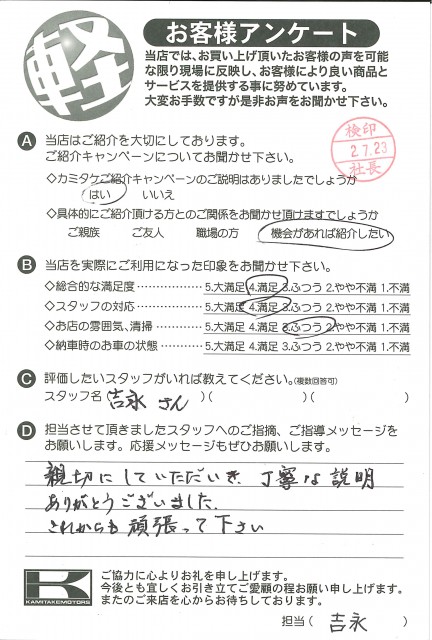 軽
お客様アンケート
当店では、お買い上げ頂いたお客様の声を可能
な限り現場に反映し、お客様により良い商品と
サービスを提供する事に努めています。
大変お手数ですが是非お声をお聞かせ下さい。
検印
2 7.23
社長
A 当店はご紹介を大切にしております。
ご紹介キャンペーンについてお聞かせ下さい。
◇カミタケご紹介キャンペーンのご説明はありましたでしょうか
はい いいえ
◇具体的にご紹介頂ける方とのご関係をお聞かせ頂けますでしょうか
ご親族 ご友人 職場の方 機会があれば紹介したい
B 当店を実際にご利用になった印象をお聞かせ下さい。
◇総合的な満足度 ・・・・・・・・・・・・ 5.大満足 4.満足 3.ふつう 2.やや不満 1.不満
◇スタッフの対応 ・・・・・・・・・・・・ 5.大満足 4.満足 3.ふつう 2.やや不満 1.不満
◇お店の雰囲気、清掃 ・・・・・・・・ 5.大満足 4.満足 3.ふつう 2.やや不満 1.不満
◇納車時のお車の状態 ・・・・・・・・ 5.大満足 4.満足 3.ふつう 2.やや不満 1.不満
C 評価したいスタッフがいれば教えてください。(複数回答可)
スタッフ名( 吉永 さん )( )( )
D 担当させて頂きましたスタッフへのご指摘、ご指導メッセージを
お願いします。応援メッセージもぜひお願いします。
親切にしていただいき 丁寧な説明
ありがとうございました.
これからも頑張って下さい
K
KAMITAKEMOTORS
ご協力に心よりお礼を申し上げます。
今後とも宜しくお引き立てご愛顧の程お願い申し上げます。
またのご来店を心からお待ちしております。
担当( 吉永 )